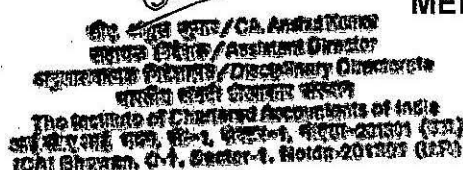 ME
सीए. /CA. Kumar
सहायक निदेशक/Assistant Director
अनुशासनात्मक निदेशालय/Disciplinary Directorate
भारतीय सनदी लेखाकार संस्थान
The Institute of Chartered Accountants of India
आई सी ए आई भवन, सी-1, सेक्टर-1, नोएडा-201301 (उ.प्र.)
ICAI Bhawan, C-1, Sector-1, Noida-201301 (U.P.)